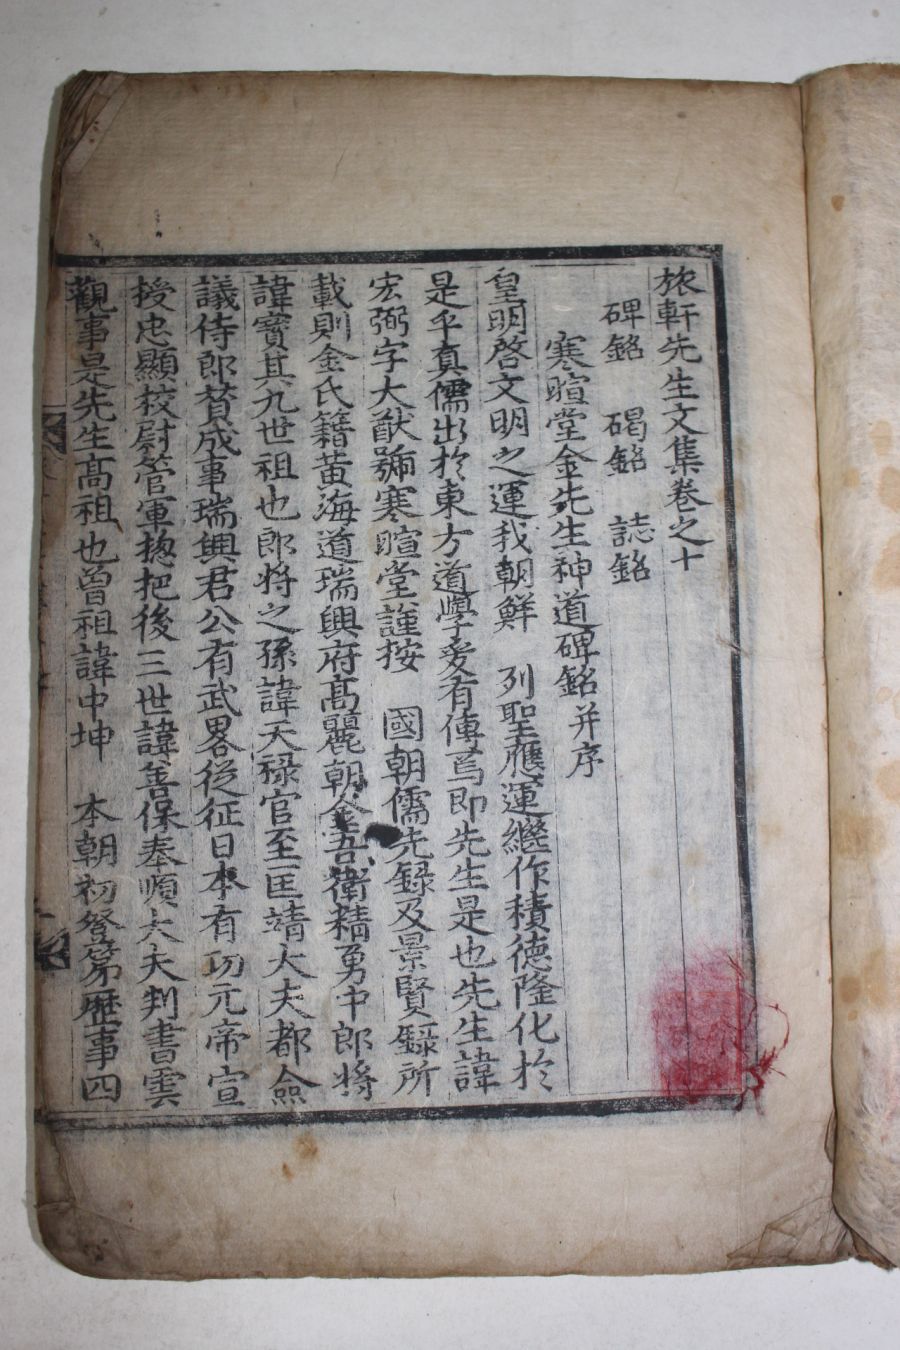 旅軒先生文集卷之十
碑銘 碣銘 誌銘
寒暄堂金先生神道碑銘并序
皇明啓文明之運我朝鮮 列聖應運繼作積德隆化於
是乎眞儒出於東方道學爰有傳焉即先生是也先生諱
宏弼字大猷號寒暄堂謹按 國朝儒先錄及景賢錄所
載則金氏籍黃海道瑞興府高麗朝金吾衛精勇中郎將
諱寶其九世祖也郎將之孫諱天祿官至匡靖大夫都僉
議侍郎贊成事瑞興君公有武畧從征日本有功元帝宣
授忠顯校尉管軍摠把後三世諱善保奉順大夫判書雲
觀事是先生高祖也曾祖諱中坤 本朝初登第歷事四